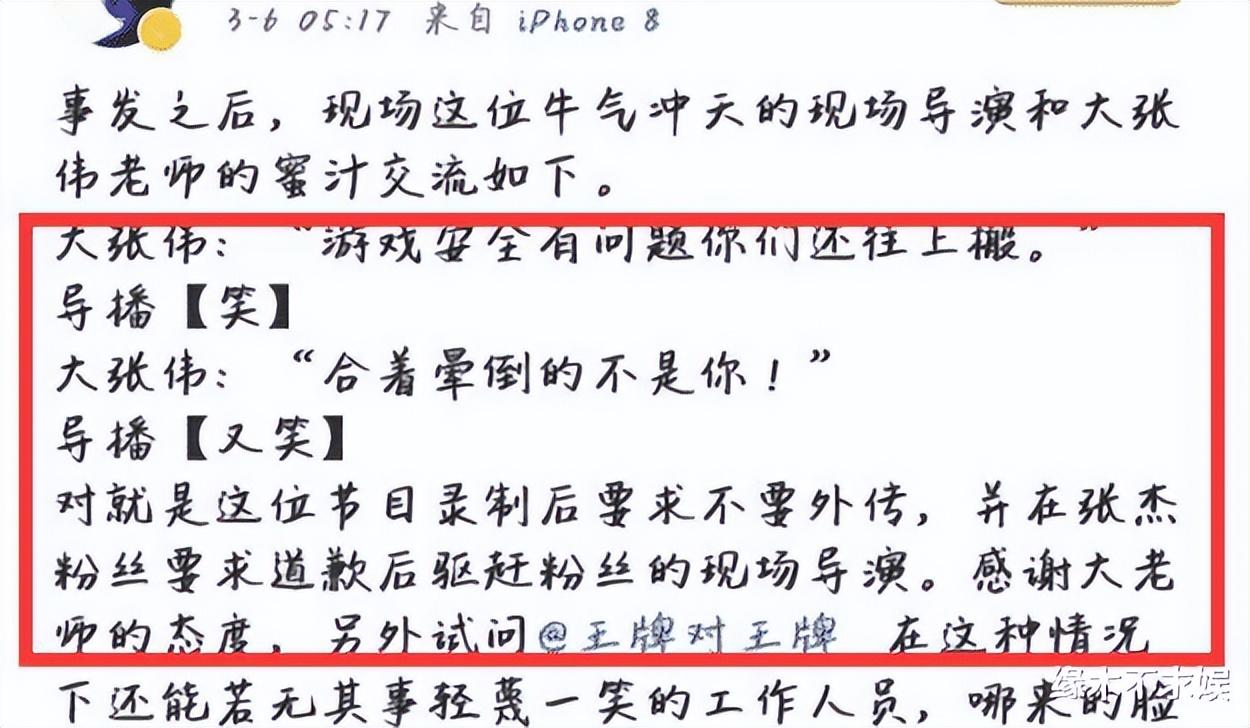 3-6 05:17 来自 iPhone 8
事发之后，现场这位牛气冲天的现场导演和大张
伟老师的蜜汁交流如下。
大张伟：“游戏安全有问题你们还往上搬。”
导播【笑】
大张伟：“合着晕倒的不是你！”
导播【又笑】
对就是这位节目录制后要求不要外传，并在张杰
粉丝要求道歉后驱赶粉丝的现场导演。感谢大老
师的态度，另外试问@王牌对王牌 在这种情况
下还能若无其事轻蔑一笑的工作人员，哪来的脸
缘木不求娱